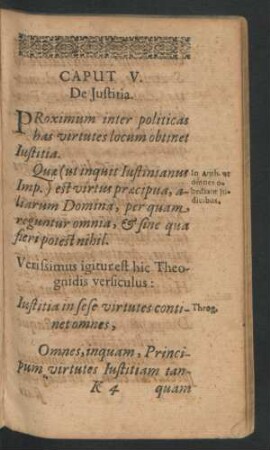 CAPUT V.
De Justitia.
PRoximum inter politicas
has virtutes locum obtinet
Iustitia.
Quæ (ut inquit Iustinianus
Imp.) est virtus præcipua, a-
liarum Domina, per quam
reguntur omnia, & sine qua
fieri potest nihil.
In auth. ut
omnes o-
bediant ju-
dicibus.
Verissimus igitur est hic Theo-
gnidis versiculus:
Iustitia in sese virtutes conti-
net omnes,
Theog.
Omnes, inquam, Princi-
pum virtutes Iustitiam tan-
K 4
quam